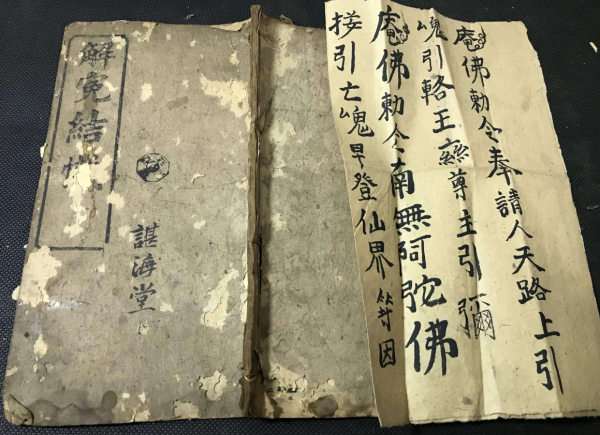 庵佛勅令奉請人天路上引
魂引輅王慈尊主引彌
庵佛勅令南無阿陀佛
接引亡魂早登仙界符因
解寃結
諶海堂